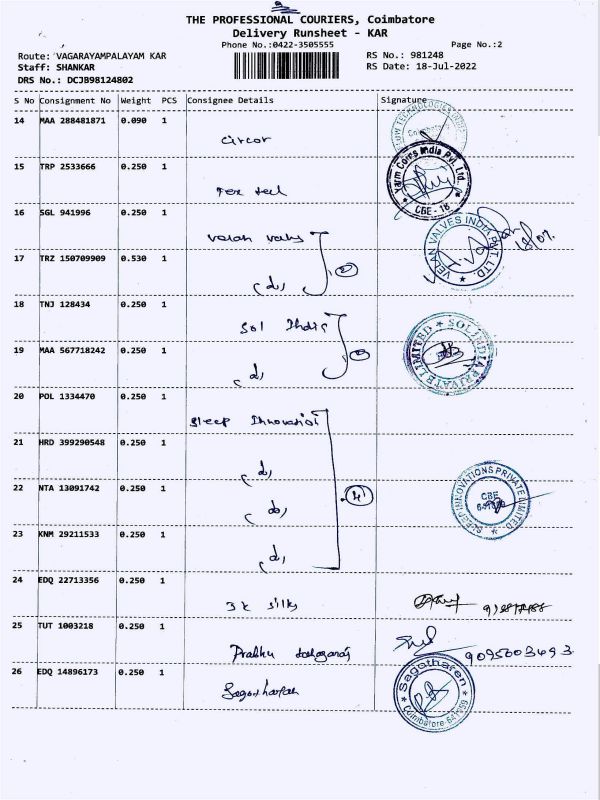 THE PROFESSIONAL COURIERS, Coimbatore
Delivery Runsheet - KAR
Phone No.:0422-3505555
Page No.:2
Route: VAGARAYAMPALAYAM KAR
RS No.: 981248
Staff: SHANKAR
RS Date: 18-Jul-2022
DRS No.: DCJB98124802
S No Consignment No Weight PCS Consignee Details Signature
14 MAA 288481871 0.090 1
Circor
15 TRP 2533666 0.250 1
CBE - 18
16 SGL 941996 0.250 1
Velan Valves
VELAN VALVES INDIA PVT. LTD
17 TRZ 150709909 0.530 1
(d)
2
18 TNJ 128434 0.250 1
Sol India
SOL INDIA PRIVATE LIMITED
19 MAA 567718242 0.250 1
(d)
20 POL 1334470 0.250 1
Sleep Innovation
21 HRD 399290548 0.250 1
(d)
22 NTA 13091742 0.250 1
(d)
4
SLEEP INNOVATIONS PRIVATE LIMITED
CBE
23 KNM 29211533 0.250 1
(d)
24 EDQ 22713356 0.250 1
3k silks
25 TUT 1003218 0.250 1
Prabhu
9095603693
26 EDQ 14896173 0.250 1
Sagothafen
Coimbatore